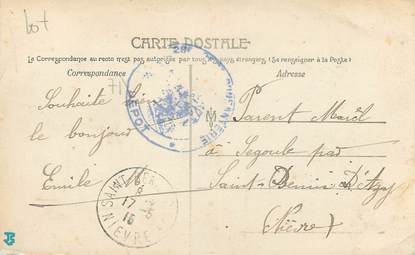 lot
CARTE POSTALE
La Correspondance au recto n'est pas autorisée par tous pays étrangers. (Se renseigner à la Poste)
Correspondance
Adresse
Souhaite bien
le bonjour
Emile
Parent Marcel
à Segoule par
Saint-Denin D'Azy
(Nièvre)
DÉPOT
INFANTERIE
SAINT
NIEVRE
17 -5
15